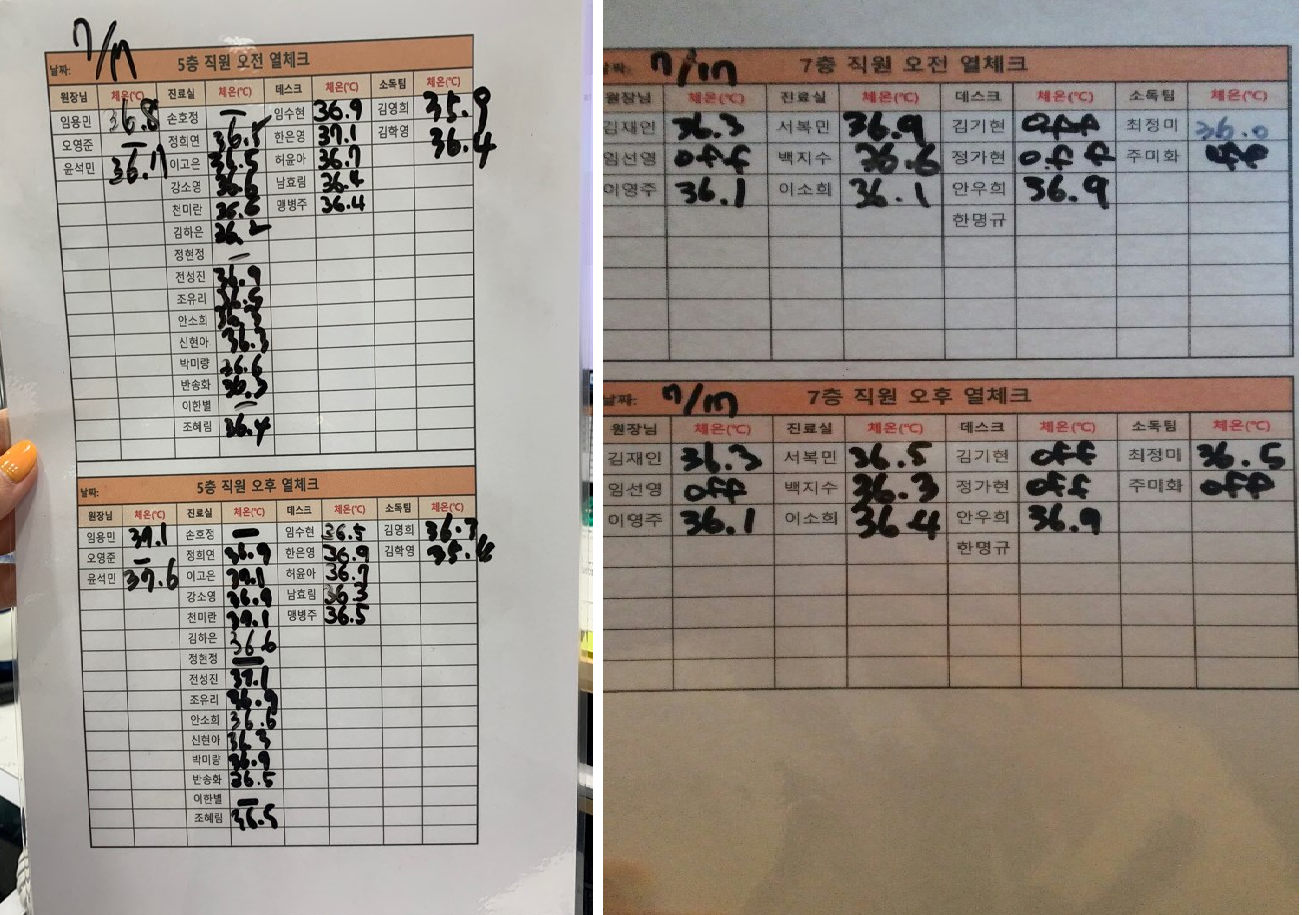 7/17
날짜: 5층 직원 오전 열체크
원장님 체온(℃) 진료실 체온(℃) 데스크 체온(℃) 소독팀 체온(℃)
임용민 36.8 손호정 - 임수현 36.9 김영희 35.9
오영준 - 정희연 한은영 37.1 김학영 36.4
윤석민 36.7 이고은 36.5 허윤아 36.7
강소영 36.6 남효림 36.4
천미란 36.6 맹병주 36.4
김하은 36.2
정현정 -
전성진 36.9
조유리 36.5
안소희
신현아 36.3
박미량 36.6
반송화
이한별 -
조혜림 36.4
날짜: 5층 직원 오후 열체크
원장님 체온(℃) 진료실 체온(℃) 데스크 체온(℃) 소독팀 체온(℃)
임용민 37.1 손호정 - 임수현 36.5 김영희 36.7
오영준 - 정희연 36.9 한은영 36.9 김학영
윤석민 37.6 이고은 37.1 허윤아 36.7
강소영 36.9 남효림 36.3
천미란 37.1 맹병주 36.5
김하은 36.6
정현정 -
전성진 37.1
조유리 36.9
안소희 36.6
신현아 36.3
박미량 36.9
반송화 36.5
이한별 -
조혜림 36.5
날짜: 7/17 7층 직원 오전 열체크
원장님 체온(℃) 진료실 체온(℃) 데스크 체온(℃) 소독팀 체온(℃)
김재인 36.3 서복민 36.9 김기현 off 최정미 36.0
임선영 off 백지수 36.6 정가현 off 주미화 off
이영주 36.1 이소희 36.1 안우희 36.9
한명규
날짜: 7/17 7층 직원 오후 열체크
원장님 체온(℃) 진료실 체온(℃) 데스크 체온(℃) 소독팀 체온(℃)
김재인 36.3 서복민 36.5 김기현 off 최정미 36.5
임선영 off 백지수 36.3 정가현 off 주미화 off
이영주 36.1 이소희 36.4 안우희 36.9
한명규